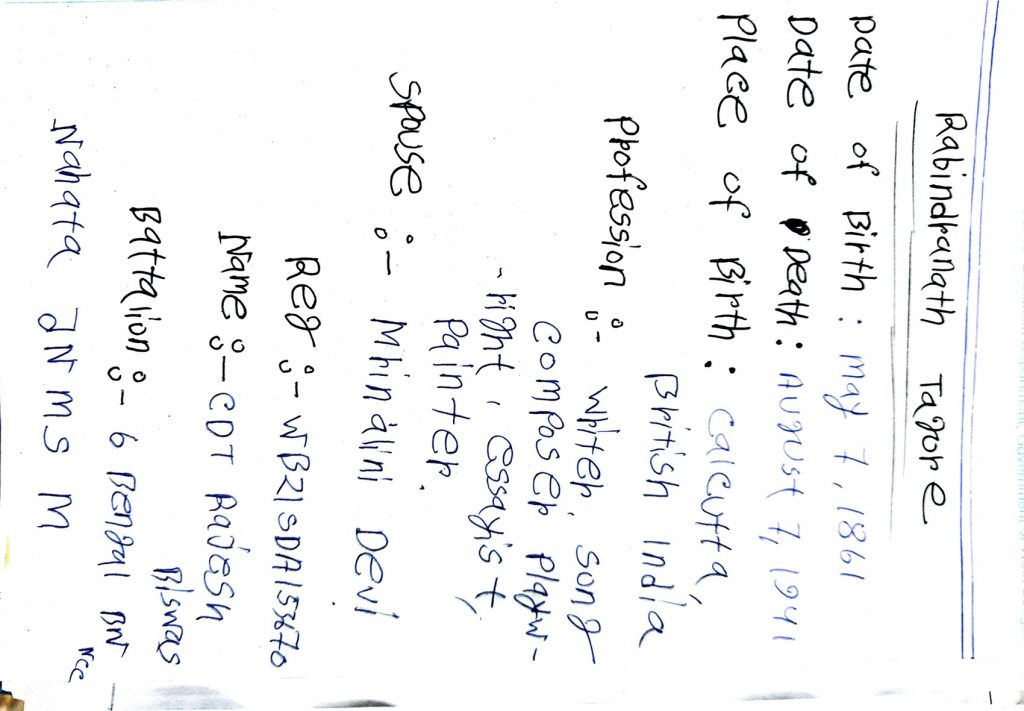 Rabindranath Tagore
Date of Birth : May 7, 1861
Date of Death : August 7, 1941
Place of Birth : Calcutta,
British India
Profession :- Writer, song
composer, playw-
-hight, essayist,
Painter.
Spouse :- Mrinalini Devi
Reg :- WB21SDA155670
Name :- CDT Rajesh
Biswas
Battalion :- 6 Bengal BN
NCC
Nahata JNMS M